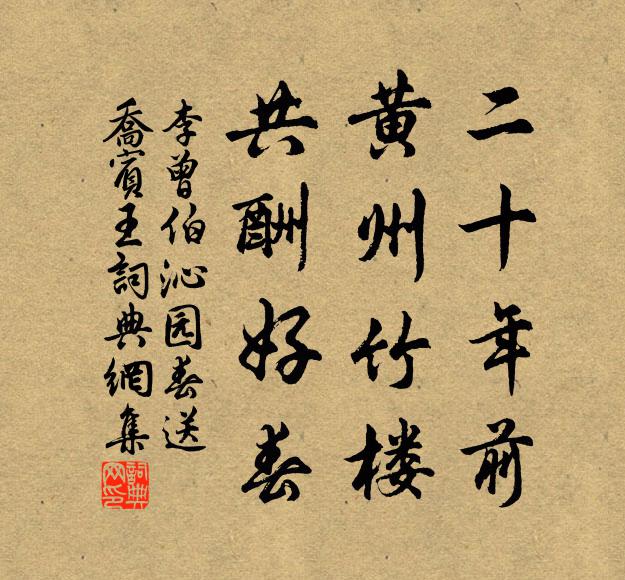 二十年前
黄州竹楼
共酬好春
李曾伯沁园春送
喬賓王詞典網集
詞典
网印